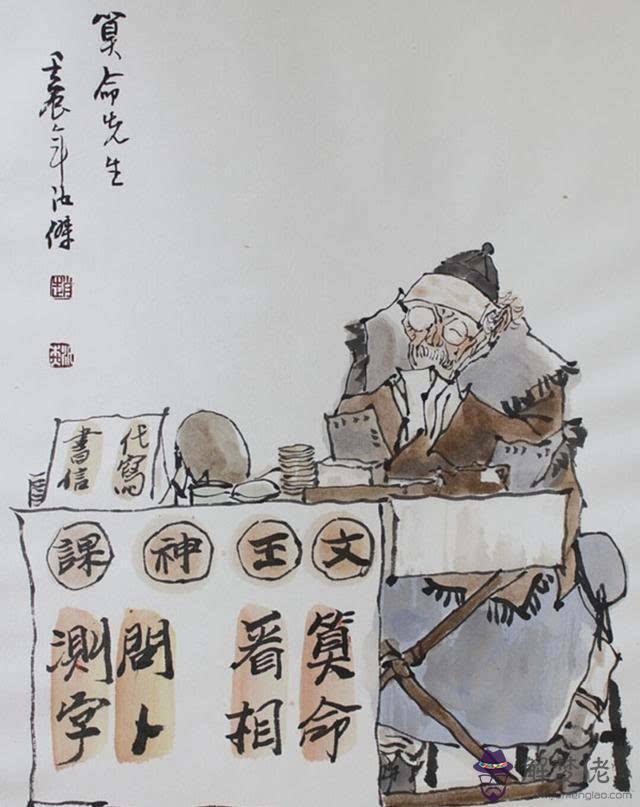 算命先生
壬辰年 傑
代寫
書信
文王神課
算命
看相
問卜
測字
解梦老